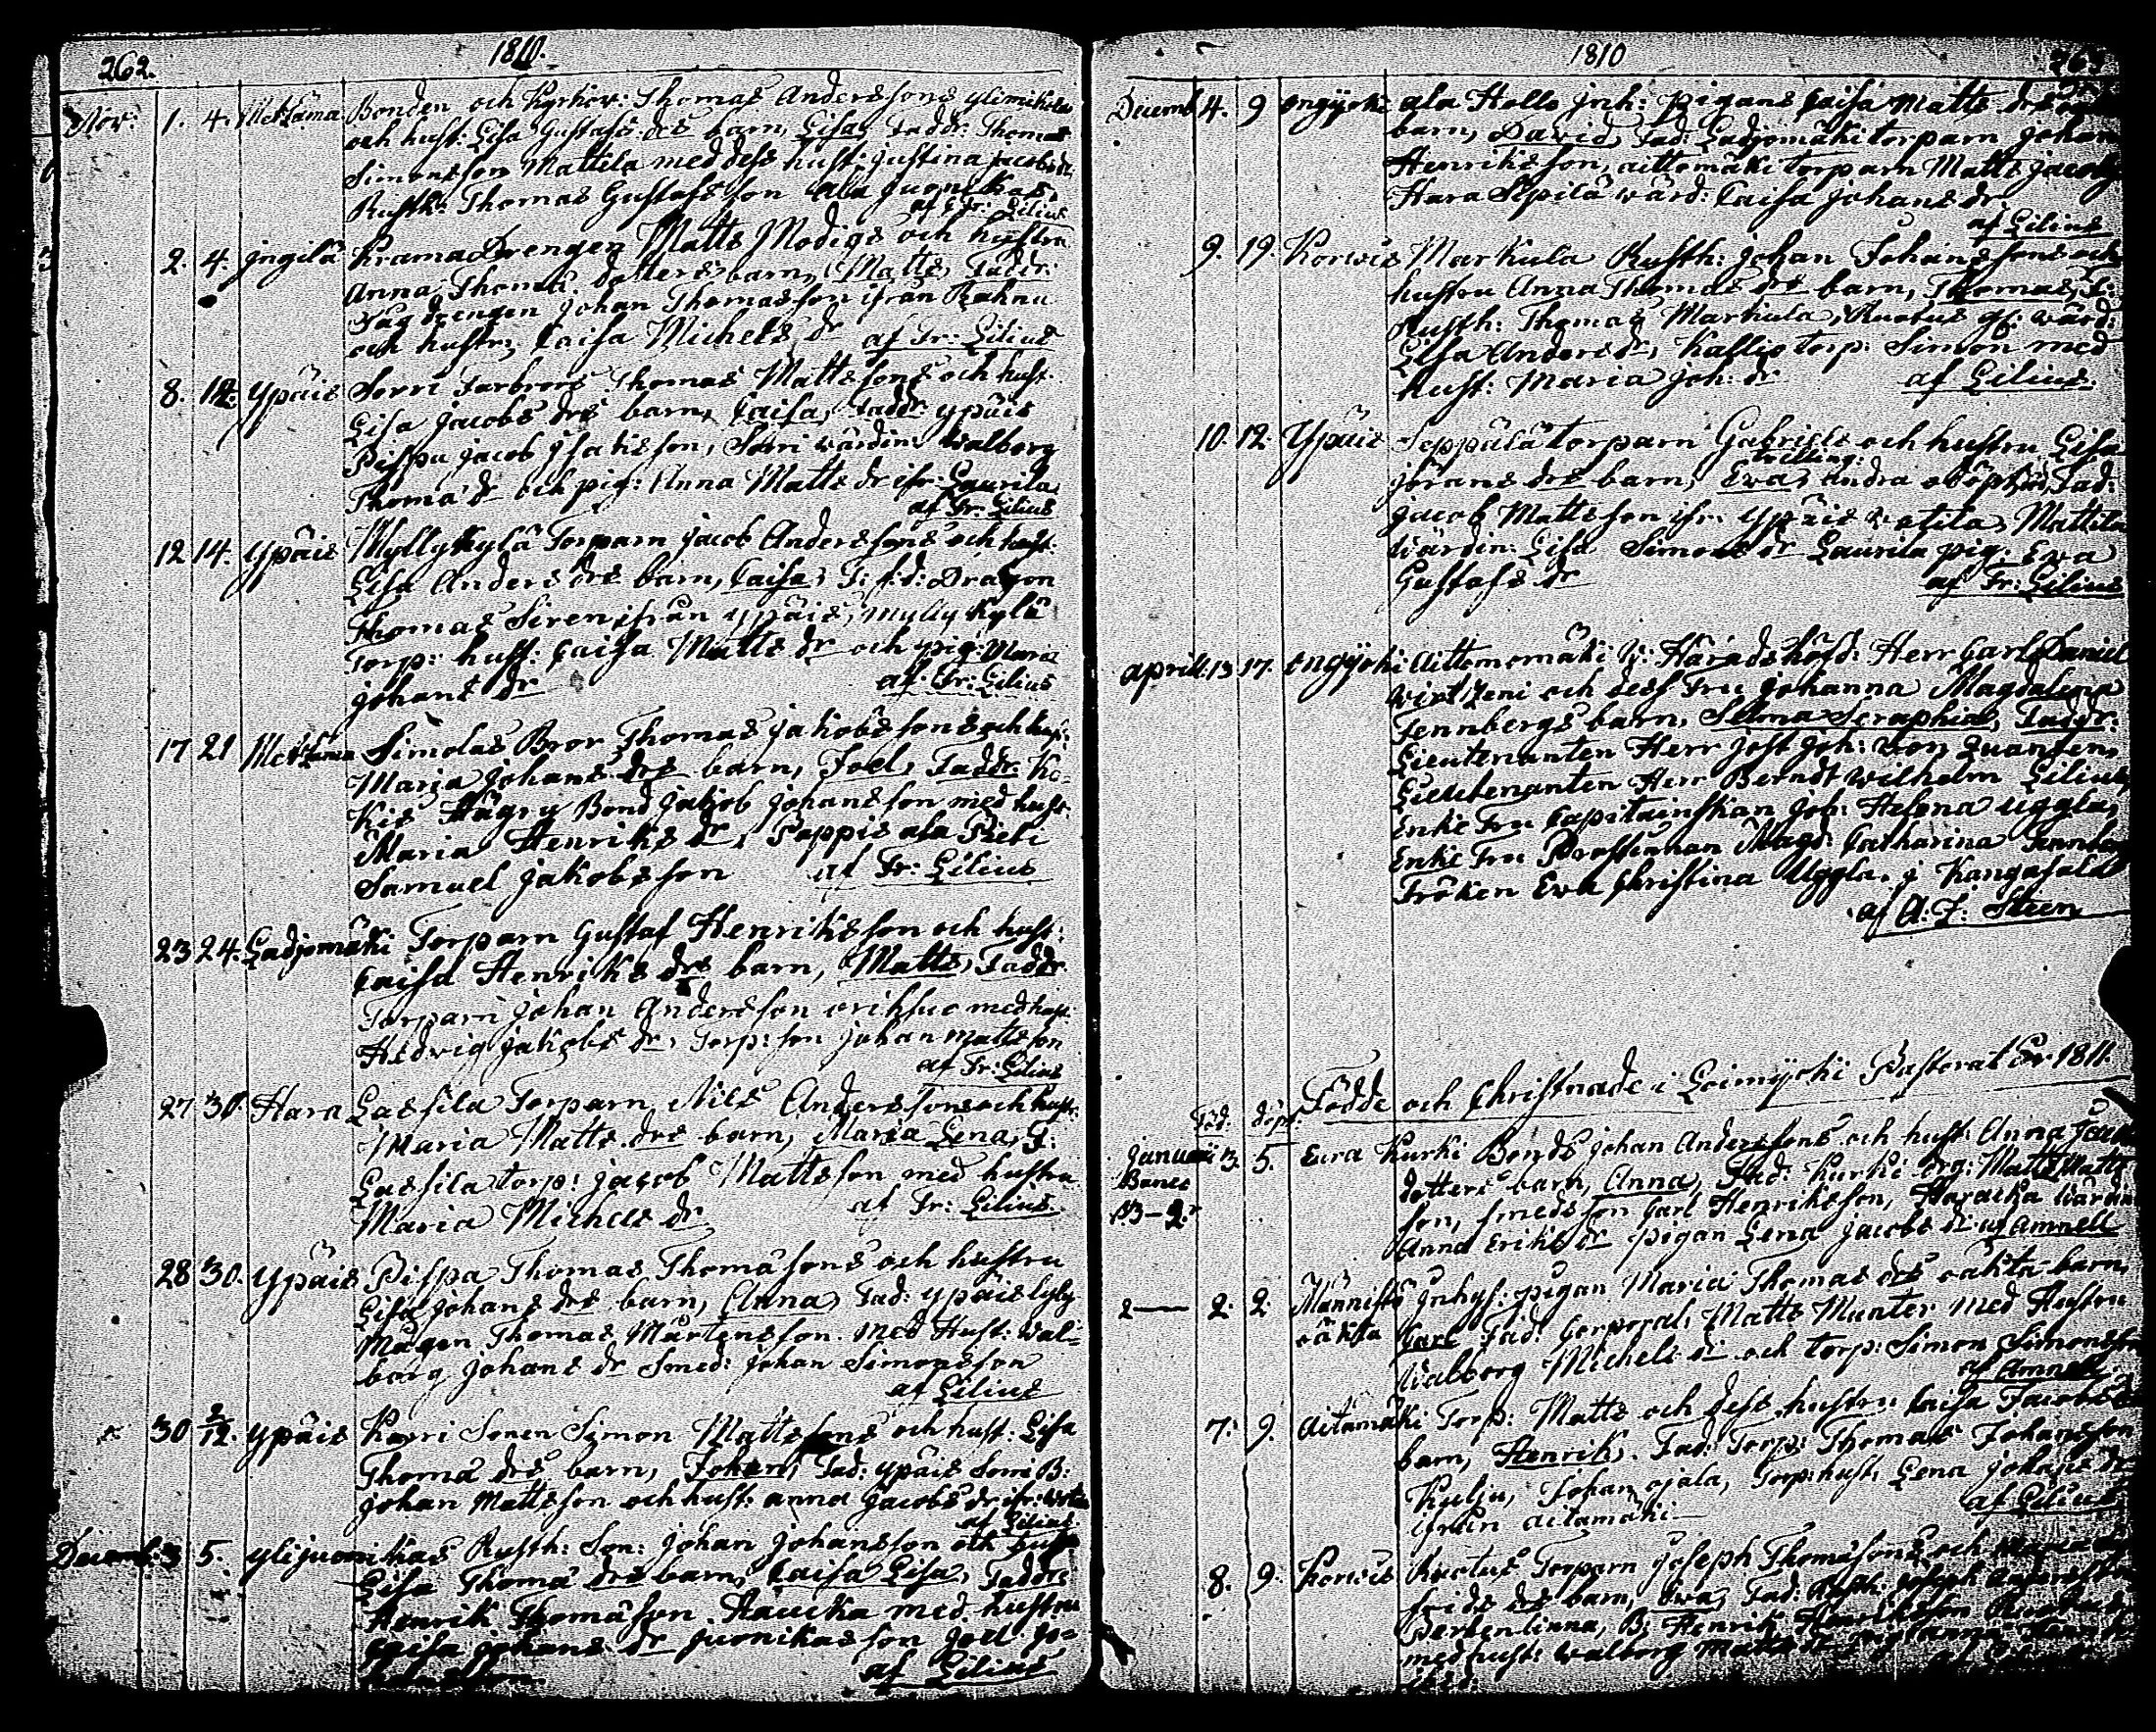 262.
1810.
Nov: 1. 4. Mettäma Bonden och Kyrkov: Thomas Anderssons ylimikola
och hust: Lisa Gustafs drs barn, Lisa, Faddr: Thomas
Simonsson Mattila med dess hust: Justina Jacobs dr,
Rusth: Thomas Gustafsson ala Juonikas
af Fr: Lilius
2. 4. Jngilä Krama Drengen Matts Modigs och hustru
Anna Thomæ dotters barn, Matts, Faddr:
Drengen Johan Thomasson ifrån Rahnu
och hustru, Caisa Michels dr af Fr: Lilius
8. 12. Ypäis Sorri Farbrors Thomas Mattssons och hust:
Lisa Jacobs drs barn, Caisa, Faddr: ypäis
Pispa Jacob Jsaksson, Sorri värdin: Walborg
Thomæ dr och pig: Anna Matts dr ifr: Laurila
af Fr: Lilius
12 14. Ypäis Myllykylä Torparn Jacob Anderssons och hust:
Lisa Anders drs barn, Caisa, F: f.d: Dragon
Thomas Siren ifrån ypäis, Myllykylä
Torp: hust: Caisa Matts dr och pig: Maria
Johans dr af Fr: Lilius
17 21 Mettäma Simolas Bror Thomas Jakobssons och hust:
Maria Johans drs barn, Joel, Faddr: Ko-
kis Hägry Bond Jakob Johansson med hust:
Maria Henriks dr, Pappis ala Pieti
Samuel Jakobsson af Fr: Lilius
23 24. Ladjomäki Torparn Gustaf Henriksson och hust:
Caisa Henriks drs barn, Matts, Faddr.
Torparn Johan Andersson orihsuo med hust:
Hedvig Jakobs dr, Torp: son Johan Mattsson
af Fr: Lilius
27 30. Hara Lassila Torparn Nils Anderssons och hust:
Maria Matts drs barn, Maria Lena, F:
Lassila torp: Jacob Mattsson med hustru
Maria Michels dr af Fr: Lilius
28 30. Ypäis Pispa Thomas Thomæsons och hustru
Lisa Johans drs barn, Anna, Fad: ypäis
Mågen Thomas Mårtensson med Hust: Wal-
borg Johans dr Smed: Johan Simonsson
af Lilius
30 2/12. Ypäis Karri Sonen Simon Mattssons och hust: Lisa
Thomæ drs barn, Johan, Fad: ypäis Sorri B:
Johan Mattsson och hust: Anna Jacobs dr ifr:
af Lilius
Decemb: 3 5. ylijuonikas Rusth: Son: Johan Johansson och hust
Lisa Thomæ drs barn, Caisa Lisa, Faddrs
Henrik Thomæson Haucka med hustru
Caisa Johans dr Juonikas son Joel Jo-
af Lilius
1810
Decemb 4. 9 öngyöki ala Hollo Jnh: pigans Caisa Matts drs
barn, David, Fad: Ladjomäki torparn Johan
Henriksson, aittomäki torparn Matts Jacobs
Hara Sepilä värd: Caisa Johans dr
af Lilius
9. 19. Korwis Markula Rusth: Johan Johanssons och
hustru Anna Thomæ drs barn, Thomas, F:
Rusth: Thomas Markula Ruotus gl: värd:
Lisa Anders dr, Kallio torp: Simon med
Hust: Maria Joh: dr af Lilius.
10. 12. Ypäis Seppälä torparn Gabriels och hustru Lisa
trilling:
Jörans drs barn, Eva, andra odöpta, Fad:
Jacob Mattsson ifr: Ypäis Mattila
Värdin: Lisa Simons dr Laurila pig: Eva
Gustafs dr af Fr: Lilius
april: 13 17. öngyöki Aittomäki V: Häradshöfd: Herr Carl Daniel
Wirtzeni och dess Fru Johanna Magdalena
Fennbergs barn, Selma Seraphia, Faddr.
Lieutenanten Herr Jost Joh: von Quanten,
Lieutenanten Herr Berndt Wilhelm Lilius
Enke Fru Capitainskan Joh: Helena Uggla,
Enke Fru Prostinnan Magd: Catharina Fennberg
Fröken Eva Christina Uggla. i Kangasala
af A: F: Steen
Födde och Christnade i Loimjoki Pastorat År 1811.
Föd: döpt:
Januarii 3. 5. Eura Kurki Bonds Johan Anderssons och hust: Anna
Banes dotters barn, Anna, Fad: Kurki drg: Matts Matts
son, smedsson Carl Henriksson, värdin
Anna Eriks dr pigan Lena Jacobs dr af Amnell
2 — 2. 2. Männistö Jnhys: pigan Maria Thomas drs oäkta barn,
oäkta Carl Fad: Corporal: Matts Munter med Hustru
Walborg Michels dr och torp: Simon Simonsson
af Amnell
7. 9. Aitamäki Torp: Matts och dess hustru Caisa Jacobs
barn, Henrik, Fad: Torp: Thomas Johansson
Kulju, Johan ojala, Torp: hust: Lena Johans dr
ifrån aitamäki — af Lilius
8. 9. Korwis Ruotus Torparn Joseph Thomæsons och
drs barn, Eva, Fad:
B: Henrik Henriksson
med hust: Walborg Matts dr